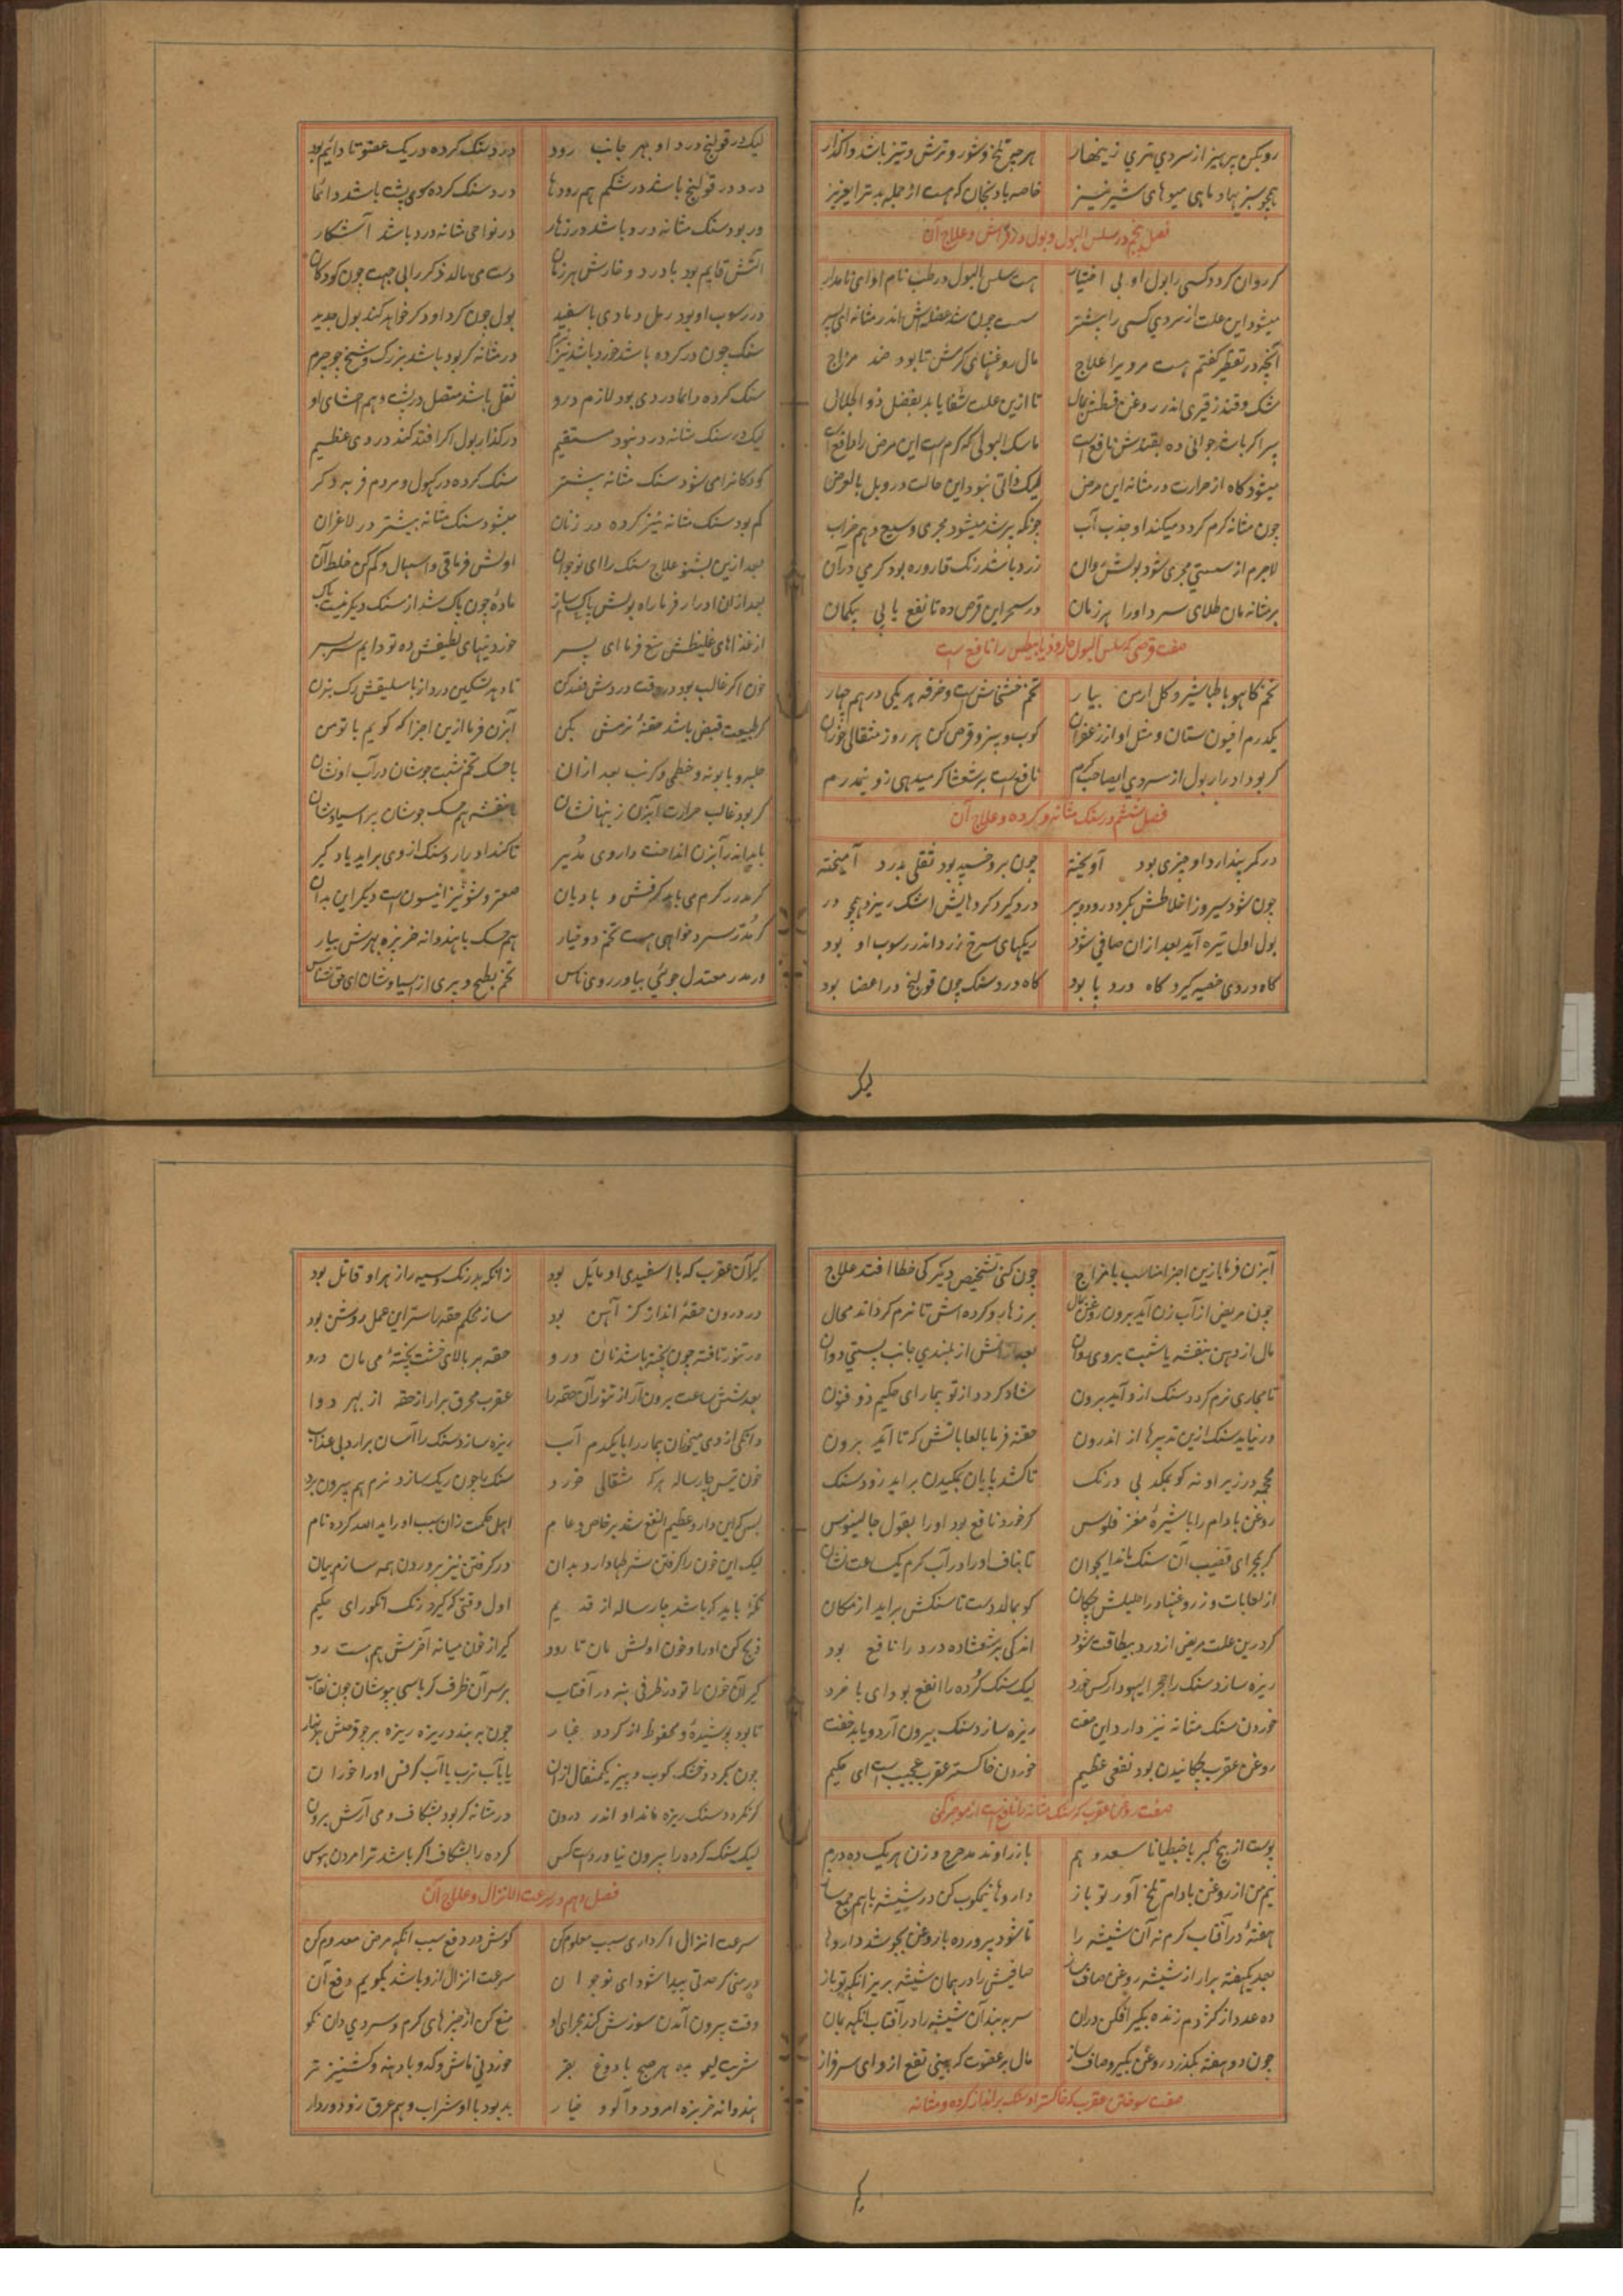 رو بکن پرهیز از سردی و تری زینهار هر چیز تلخ و شور و ترش و تیز باشد واگذار
همچو سبزیها و ماهی میوهای شیر نیز خاصه بادنجان که هست از جمله بدتر ای عزیز
فصل پنجم در سلس البول و بول در فراش و علاج آن
کر روان کردد کسی را بول او بی اختیار هست سلس البول در طب نام او ای نامدار
میشود این علت از سردی کسی را بیشتر سست چون شد عضلهش اندر مثانه ای پسر
آنچه در تقطیر کفتم هست مر ویرا علاج مال روغنهای کرمش تا بود ضد مزاج
مشک وقند زقیری اندر روغن قسطش بمال تا ازین علت شفا یابد بفضل ذو الجلال
پیر اکر باشد جوانی ده بقندش نافع است ماسک البولی که کرم است این مرض را دافع است
میشود کاه از حرارت در مثانه این مرض لیک ذاتی نبود این حالت در و بل بالعرض
چون مثانه کرم کردد میکند او جذب آب چونکه پر شد میشود مجری وسیع و هم خراب
لاجرم از سستی مجری شود بولش روان زرد باشد رنک قاروره بود کرمی در آن
بر مثانه مان طلای سرد او را هر زمان در سحر این قرص ده تا نفع یابی بیکمان
صفت قرصی که سلس البول حار و ذیابیطس را نافع است
تخم کاهو با طباشیر و کل ارمن بیار تخم خشخاش است و خرفه هر یکی درهم چهار
یکدرم افیون ستان و مثل او از زعفران کوب و بیز و قرص کن هر روز مثقالی خوران
کر بود ادرار بول از سردی ای صاحب کرم نافع است برشعثا کر میدهی زو نیمدرم
فصل ششم در سنک مثانه و کرده و علاج آن
در کمر پندارد او چیزی بود آویخته چون برو خسپد بود ثقلی بدرد آمیخته
چون شود سیر و ز اخلاطش بکردد روده پر درد کیرد کردهایش اشک ریزد همچو در
بول اول تیره آید بعد ازان صافی شود ریکهای سرخ زرد اندر رسوب او بود
کاه دردی خصیه کیرد کاه درد پا بود کاه درد سنک چون قولنج در اعضا بود
لیک
لیک در قولنج درد او بهر جانب رود درد سنک کرده در یک عضو تا دایم بود
درد در قولنج باشد در شکم هم رودها درد سنک کرده سوی پشت باشد دائما
ور بود سنک مثانه درد باشد در زهار در نواحی مثانه درد باشد آشکار
التش قایم بود با درد و خارش هر زمان دست می مالد ذکر را بی جهت چون کودکان
در رسوب او بود رمل رمادی یا سفید بول چون کرد او دکر خواهد کند بول جدید
سنک چون در کرده باشد خورد باشد نیز در مثانه کر بود باشد بزرک و
سنک کرده دائما دردی بود لازم درو ثقل باشد متصل در پشت و هم احشای او
لیک در سنک مثانه درد نبود مستقیم در کذار بول اکر افتد کند دردی عظیم
کودکانرا می شود سنک مثانه بیشتر سنک کرده در کهول و مردم فربه دکر
کم بود سنک مثانه نیز کرده در زنان میشود سنک مثانه بیشتر در لاغران
بعد ازین بشنو علاج سنک را ای نوجوان اولش فرما قی و اسهال و کم کن خلط آن
بعد ازان ادرار فرما راه بولش پاک ساز ماده چون پاک شد از سنک دیکر نیست باک
از غذاهای غلیظش منع فرما ای پسر خوردنیهای لطیفش ده تو دایم سر بسر
خون اکر غالب بود در وقت دردش فصد کن تا دهد تسکین درد از باسلیقش رک بزن
کر طبیعت قبض باشد حقنهٔ نرمش بکن آبزن فرما ازین اجزا که کویم با تو من
حلبه و بابونه و خطمی و کرنب بعد ازان با حسک تخم شبت جوشان در آب او نشان
کر بود غالب حرارت آبزن زینها نشان بنفشه هم حسک جوشان پرسیاوشان
باید اندر آبزن انداخت داروی مدیر تا کند ادرار و سنک از وی براید یاد کیر
کر مدر کرم می باید کرفش و بادیان صعتر و شونیز انیسون است دیکر این بدان
کر مدر سرد خواهی هست تخم دو خیار هم حسک با هندوانه خربزه بهرش بیار
ور مدر معتدل جوئی بیاور روی ناس تخم بطیخ و بری از سیاوشان ای حق شناس
آبزن فرما ازین اجزا مناسب با مزاج چون کنی تشخیص دیکر کی خطا افتد علاج
چون مریض از آب زن آید برون روغن بمال بر زهار و کرده اش تا نرم کرداند محال
مال از دهن بنفشه یا شبت بر وی روان بعد زانش از بلندی جانب پستی دوان
تا مجاری نرم کردد سنک ازو آید برون شاد کردد از تو بیمار ای حکیم ذو فنون
ور نیاید سنک ازین تدبیرها از اندرون حقنه فرما با لعاباتش که تا آید برون
محجمه در زیر او نه کو بمکد بی درنک تا کشد پایان بمکیدن براید زود سنک
روغن بادام را با شیرهٔ مغز فلوس کر خورد نافع بود او را بقول جالینوس
کر بمجرای قضیب آن سنک ماند ای جوان تا بناف او را در آب کرم یک ساعت نشان
از لعابات و ز روغنها در احلیلش چکان کو بمالد دست تا سنکش براید از مکان
کر درین علت مریض از درد بیطاقت شود اندکی برشعشا ده درد را نافع بود
ریزه سازد سنک را حجر الیهود ار کس خورد لیک سنک کرده را انفع بود ای با خرد
خوردن سنک مثانه نیز دارد این صفت ریزه سازد سنک بیرون آرد و یابد خفت
روغن عقرب چکانیدن بود نفعی عظیم خوردن خاکستر عقرب عجیب است ای حکیم
صفت روغن عقرب که سنک مثانه را نافع است از موجز کی
پوست از بیخ کبر با جنطیانا سعد و هم با زراوند مدحرج وزن هر یک ده درم
نیم من از روغن بادام تلخ آور تو باز داروها نیمکوب کن در شیشه با هم جمع ساز
هفتهٔ در آفتاب کرم نه آن شیشه را تا شود پرورده با روغن بجوشد داروها
بعد یکهفته برار از شیشه روغن صاف ساز صافیش را در همان شیشه بریز آنکه تو باز
ده عدد از کژدم زنده بکیر افکن دران سر ببند آن شیشه را در آفتاب آنکه بمان
چون دو هفته بکذرد روغن بکیر و صاف ساز مال بر عضوت که بینی نفع از وای سرفراز
صفت سوختن عقرب که خاکستر او سنک براندازد کرده و مثانه
کیر آن عقرب که با اسفیدی او مایل بود زانکه بد رنک و سیه را زهر او قاتل بود
در درون حقهٔ انداز کز آهن بود ساز محکم حقه را سر این عمل روشن بود
در تنور تافته چون پخته باشد نان درو حقه بر بالای خشت پختهٔ می مان درو
بعد شش ساعت برون آر از تنور آن حقه را عقرب محرق برار از حقه از بهر دوا
دانکی از وی میخوران بیمار را با یکدم آب ریزه سازد سنک را آسان برارد بی عذاب
خون تیس چار ساله هر که مثقالی خورد سنک را چون ریک سازد نرم هم بیرون برد
بس که این دارو عظیم النفع شد بر خاص و عام اهل حکمت زان سبب او را ید الله کرده نام
لیک این خون را کرفتن شرطها دارد بدان در کرفتن نیز پروردن همه سازم بیان
تکهٔ باید که باشد چار ساله از قدیم اول وقتی که کیرد رنک انکور ای حکیم
ذبح کن او را و خون اولش مان تا رود کیر از خون میانه آخرش هم هست رد
کیر آن خون را تو در ظرفی بنه در آفتاب بر سر آن ظرف کرباسی بپوشان چون نقاب
تا بود پوشیده و محفوظ از کرد و غبار چون ببندد ریزه ریزه
چون بکردد خشک کوب و بیز یکمثقال ازان یا بآب ترب یا آب کرفس او را خوران
کر نکردد سنک ریزه ماند او اندر درون در مثانه کر بود بشکاف و می آرش برون
لیک سنک کرده را بیرون نیاورد است کس کرده را بشکاف اکر باشد ترا مردن هوس
فصل دهم در سرعت الانزال و علاج آن
سرعت انزال اکر داری سبب معلوم کن کوش در دفع سبب آنکه مرض معدوم کن
در منی کر حدتی پیدا شود ای نوجوان سرعت انزال ازو باشد بکویم دفع آن
وقت بیرون آمدن سوزش کند مجرای او منع کن از چیزهای کرم و سردی دان نکو
شربت لیمو بده هر صبح با دوغ بقر خوردنی ماش و کدو با دهنه و کشنیز تر
هندوانه خربزه امرود و آلو و خیار بد بود با او شراب و هم عرق زو دور دار